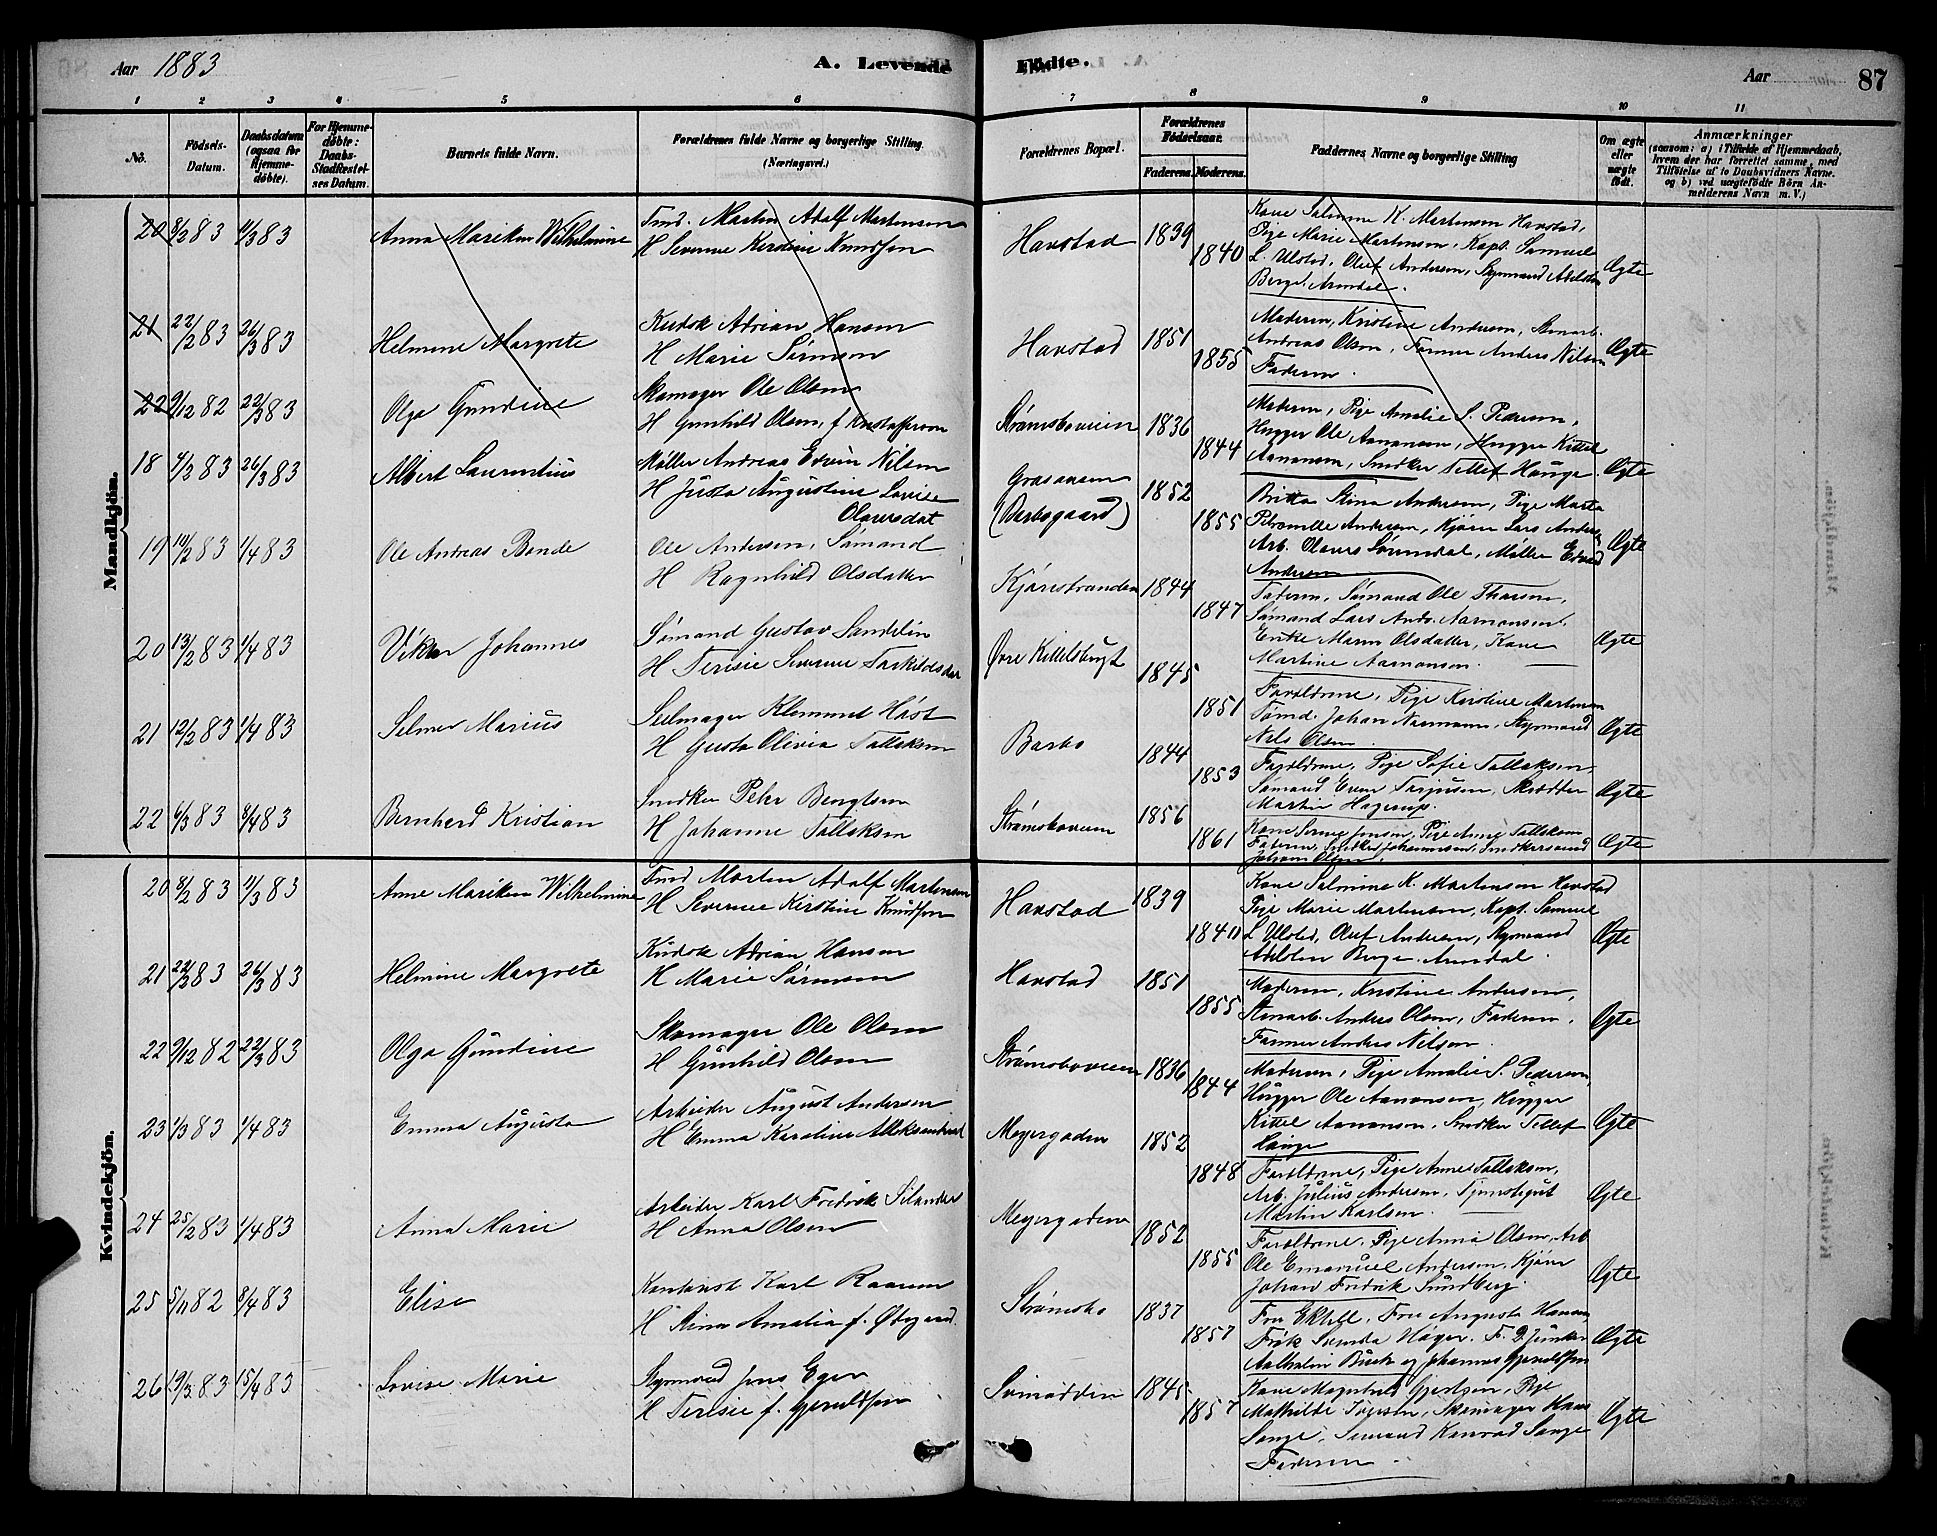 Aar 1883
A. Levende Fødte.
Aar 87
1 2 3 4 5 6 7 8 9 10 11
No.
Fødsels-Datum.
Daabsdatum (ogsaa for Hjemme-døbte).
For Hjemme-døbte: Daabs-Stadfæstel-ses Datum.
Barnets fulde Navn.
Forældrenes fulde Navne og borgerlige Stilling. (Næringsvei.)
Forældrenes Bopæl.
Forældrenes Fødselsaar.
Faderens. Moderens.
Faddernes Navne og borgerlige Stilling
Om ægte eller uægte født.
Anmærkninger
(saasom: a) i Tilfælde af Hjemmedaab, hvem der har forrettet samme, med Tilføielse af to Daabsvidners Navne. og b) ved uægtefødte Børn An-melderens Navn m. V.)
Mandkjön.
20 8/2 83 11/3 83 Anna Mariken Wilhelmine
Tmd. Martin Adolf Martensen
H Severine Kerstine Knudsen
Havstad 1839 1840
Kone Salmine K. Martensen Havstad,
Pige Marie Martensen, Kapt. Samuel
L. Ulstad, Oluf Andersen, Styrmand Adelsten
Berge. Arendal.
Ægte
21 22/2 83 26/3 83 Helmine Margrete
Kudsk Adrian Hansen
H Marie Sørensen
Havstad 1851 1855
Moderen, Kristine Andersen, Stenarb.
Andreas Olsen, Farmer Anders Nilsen
Faderen.
Ægte
22 9/12 82 22/3 83 Olga Gundine
Skomager Ole Olsen
H Gunhild Olsen, f. Kristoffersen
Strømsboveien 1836 1844
Moderen, Pige Amalie S. Pedersen,
Hugger Ole Aanonsen, Hugger Kittel
Aanonsen, Snedker Tellef Hauge
Ægte
18 4/2 83 26/3 83 Albert Laurentius
Møller Andreas Edvin Nilsen
H Justa Augustine Lovise
Olavesdat
(Barbogaard) 1852 1855
Britta Stina Andersen, Pige Marta
Petronelle Andersen, Kjører Lars Anders
Arb. Olaves Sørendal, Møller Edvard
Andersen
Ægte
19 10/2 83 1/4 83 Ole Andreas Bonde
Ole Andersen, Sømand
H Ragnhild Olsdatter
Kjørrestranden 1844 1847
Faderen, Sømand Ole Tharsen,
Sømand Lars Andr. Aamonsen,
Enke Maren Olsdatter, Kone
Martine Aamonsen.
Ægte
20 13/2 83 1/4 83 Viktor Johannes
Sømand Gustav Sandelin
H Terisie Severine Tarkildsdat
Øvre Kittelsbugt 1845 1851
Forældrene, Pige Kirstine Martensen
Tømd. Johan Naemann, Styrmand
Nils Olsen.
Ægte
21 12/2 83 1/4 83 Selmer Marius
Seilmager Klemmet Høst
H Gusta Olivia Tallaksen
Barbo 1844 1853
Forældrene, Pige Sofie Tallaksen,
Sømand Even Terjusen, Skrædder
Martin Hagerup.
Ægte
22 6/3 83 8/4 83 Bernhard Kristian
Snedker Peter Bengtsen
H Johanne Tallaksen
Strømsboveien 1856 1861
Kone Serine Jensen, Pige Anne Tallaksen
Faderen, Snedker Johannesen, Snedkersvend
Johan Olsen.
Ægte
Kvindekjön.
20 8/2 83 11/3 83 Anne Mariken Wilhelmine
Tmd Morten Adolf Martensen
H Severine Kerstine Knudsen
Havstad 1839 1840
Kone Salmine K. Martensen Havstad
Pige Marie Martensen, Kapt. Samuel
L Ulstad, Oluf Andersen, Styrmand
Adelsten Berge. Arendal.
Ægte
21 22/2 83 26/3 83 Helmine Margrete
Kudsk Adrian Hansen
H Marie Sørensen
Havstad 1851 1855
Moderen, Kristine Andersen,
Stenarb. Anders Olsen, Faderen.
Farmer Anders Nilsen.
Ægte
22 9/12 82 22/3 83 Olga Gundine
Skomager Ole Olsen
H Gunhild Olsen
Strømsboveien 1836 1844
Moderen, Pige Amalie S. Pedersen,
Hugger Ole Aanonsen, Hugger
Kittel Aanonsen, Snedker Tellef
Hauge
Ægte
23 1/3 83 1/4 83 Emma Augusta
Arbeider August Andersen
H Emma Karoline
Meyergaden 1852 1848
Forældrene, Pige Anne Tallaksen,
Arb. Julius Andersen, Tjenestegut
Martin Karlsen.
Ægte
24 25/2 83 1/4 83 Anna Marie
Arbeider Karl Fredrik Silander
H Anna Olsen
Meyergaden 1852 1855
Forældrene. Pige Anna Olsen, Arb
Ole Emanuel Andersen, Kjører
Johan Fredrik Sundberg.
Ægte
25 5/11 82 8/4 83 Elise
Kontorist Karl
H Stina Amalia f. Ødegaard.
Strømsbo 1837 1857
Fru Ekfelt, Fru Augusta Hansen
Frøk Høyer. F. D. Junker
Buck og Johannes Gjeruldsen
Ægte
26 19/3 83 15/4 83 Lovise Marie
Styrmand Jens Eger
H Terisie f. Gjeruldsen
Svinodden 1845 1857
Kone Magnhild Gjertsen, Pige
Mathilde Iversen, Skomager Hans
Lange, Sømand Konrad Lange
Faderen.
Ægte